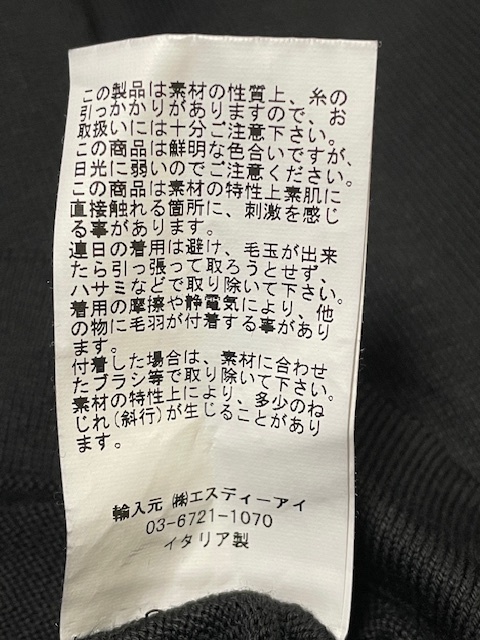 この製品は素材の性質上、糸の
引っかかりがありますので、お
取扱いには十分ご注意下さい。
この商品は鮮明な色合いですが、
日光に弱いのでご注意ください。
この商品は素材の特性上素肌に
直接触れる箇所に、刺激を感じ
る事があります。
連日の着用は避け、毛玉が出来
たら引っ張って取ろうとせず、
ハサミなどで取り除いて下さい。
着用の摩擦や静電気により、他
の物に毛羽が付着する事があり
ます。
付着した場合は、素材に合わせ
たブラシ等で取り除いて下さい。
素材の特性上により、多少のね
じれ(斜行)が生じることがあり
ます。
輸入元 ㈱エスティーアイ
03-6721-1070
イタリア製